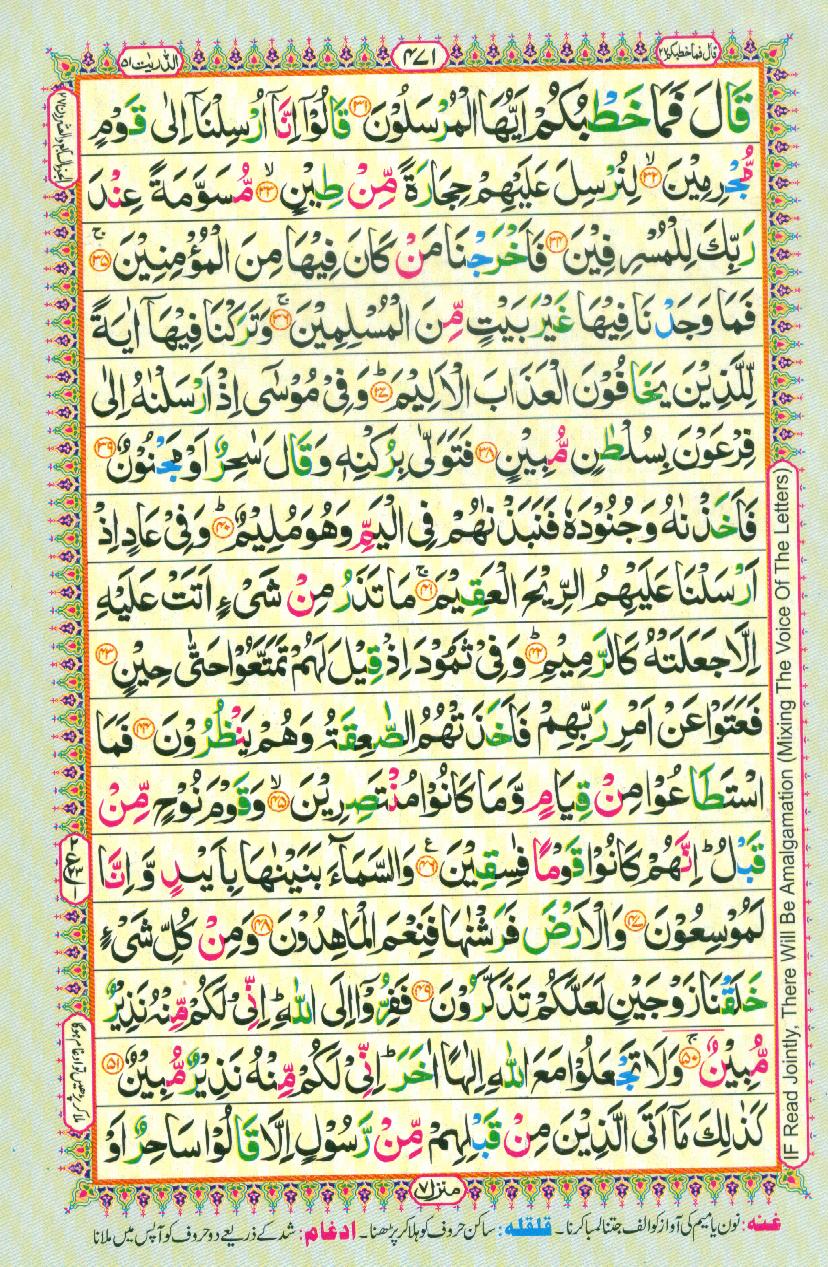 قال فما خطبکم ۲۷
۴۷۱
الذٰریٰت ۵۱
قَالَ فَمَا خَطْبُكُمْ اَيُّهَا الْمُرْسَلُوْنَ ﴿۳۱﴾ قَالُوْۤا اِنَّاۤ اُرْسِلْنَاۤ اِلٰى قَوْمٍ
مُّجْرِمِيْنَ ﴿۳۲﴾ۙ لِنُرْسِلَ عَلَيْهِمْ حِجَارَةً مِّنْ طِيْنٍ ﴿۳۳﴾ۙ مُّسَوَّمَةً عِنْدَ
رَبِّكَ لِلْمُسْرِفِيْنَ ﴿۳۴﴾ فَاَخْرَجْنَا مَنْ كَانَ فِيْهَا مِنَ الْمُؤْمِنِيْنَ ﴿۳۵﴾ۚ
فَمَا وَجَدْنَا فِيْهَا غَيْرَ بَيْتٍ مِّنَ الْمُسْلِمِيْنَ ﴿۳۶﴾ۚ وَتَرَكْنَا فِيْهَاۤ اٰيَةً
لِّلَّذِيْنَ يَخَافُوْنَ الْعَذَابَ الْاَلِيْمَ ﴿۳۷﴾ؕ وَفِىْ مُوْسٰۤى اِذْ اَرْسَلْنٰهُ اِلٰى
فِرْعَوْنَ بِسُلْطٰنٍ مُّبِيْنٍ ﴿۳۸﴾ فَتَوَلّٰى بِرُكْنِهٖ وَقَالَ سٰحِرٌ اَوْ مَجْنُوْنٌ ﴿۳۹﴾
فَاَخَذْنٰهُ وَجُنُوْدَهٗ فَنَبَذْنٰهُمْ فِى الْيَمِّ وَهُوَ مُلِيْمٌ ﴿۴۰﴾ؕ وَفِىْ عَادٍ اِذْ
اَرْسَلْنَا عَلَيْهِمُ الرِّيْحَ الْعَقِيْمَ ﴿۴۱﴾ۚ مَا تَذَرُ مِنْ شَىْءٍ اَتَتْ عَلَيْهِ
اِلَّا جَعَلَتْهُ كَالرَّمِيْمِ ﴿۴۲﴾ؕ وَفِىْ ثَمُوْدَ اِذْ قِيْلَ لَهُمْ تَمَتَّعُوْا حَتّٰى حِيْنٍ ﴿۴۳﴾
فَعَتَوْا عَنْ اَمْرِ رَبِّهِمْ فَاَخَذَتْهُمُ الصّٰعِقَةُ وَهُمْ يَنْظُرُوْنَ ﴿۴۴﴾ فَمَا
اسْتَطَاعُوْا مِنْ قِيَامٍ وَّمَا كَانُوْا مُنْتَصِرِيْنَ ﴿۴۵﴾ۙ وَقَوْمَ نُوْحٍ مِّنْ
قَبْلُ ؕ اِنَّهُمْ كَانُوْا قَوْمًا فٰسِقِيْنَ ﴿۴۶﴾ وَالسَّمَآءَ بَنَيْنٰهَا بِاَيْىدٍ وَّاِنَّا
لَمُوْسِعُوْنَ ﴿۴۷﴾ وَالْاَرْضَ فَرَشْنٰهَا فَنِعْمَ الْمَاهِدُوْنَ ﴿۴۸﴾ وَمِنْ كُلِّ شَىْءٍ
خَلَقْنَا زَوْجَيْنِ لَعَلَّكُمْ تَذَكَّرُوْنَ ﴿۴۹﴾ فَفِرُّوْۤا اِلَى اللّٰهِ ؕ اِنِّىْ لَكُمْ مِّنْهُ نَذِيْرٌ
مُّبِيْنٌ ﴿۵۰﴾ۚ وَلَا تَجْعَلُوْا مَعَ اللّٰهِ اِلٰهًا اٰخَرَ ؕ اِنِّىْ لَكُمْ مِّنْهُ نَذِيْرٌ مُّبِيْنٌ ﴿۵۱﴾
كَذٰلِكَ مَاۤ اَتَى الَّذِيْنَ مِنْ قَبْلِهِمْ مِّنْ رَّسُوْلٍ اِلَّا قَالُوْا سَاحِرٌ اَوْ
منزل ۷
IF Read Jointly, There Will Be Amalgamation (Mixing The Voice Of The Letters)
ملا کر پڑھیں تو ادغام ہوگا
غنه: نون یا میم کی آواز کو الف جتنا لمبا کرنا۔ قلقله: ساکن حروف کو ہلا کر پڑھنا۔ ادغام: شد کے ذریعے دو حروف کو آپس میں ملانا